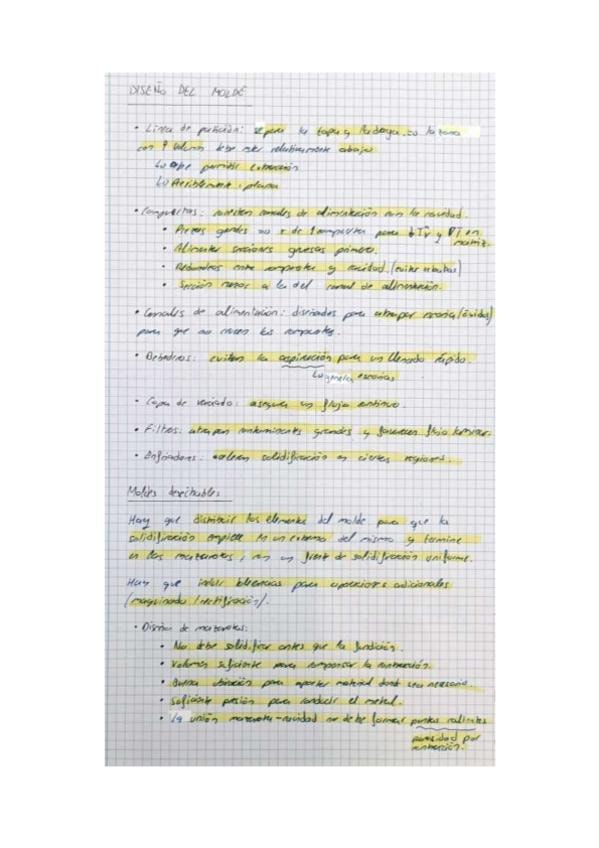 DISEÑO DEL MOLDE
• Línea de partición: separa la tapa y la draga → la zona
con ↑ volumen debe estar relativamente abajo
↳ debe permitir extracción
↳ Preferiblemente plana
• Compuertas: conectan canales de alimentación con la cavidad.
• Piezas grandes no + de 1 compuertas para ↓ T y ∇T en
matriz.
• Alimentar secciones gruesas primero.
• Redondeos entre compuertas y cavidad. (evitar
• Sección menor a la del canal de alimentación.
• Canales de alimentación: diseñados para atrapar escoria (óxidos)
para que no crucen las compuertas.
• Bebederos: evitan la aspiración para un llenado rápido.
↳ genera escorias
• Copa de vaciado: asegura un flujo continuo.
• Filtros: atrapan contaminantes grandes y favorecen flujo laminar.
• Enfriadores: aceleran solidificación en ciertas regiones.
Moldes desechables
Hay que distribuir los elementos del molde para que la
solidificación empiece en un extremo del mismo y termine
en las mazarotas, con un frente de solidificación uniforme.
Hay que incluir tolerancias para operaciones adicionales
(maquinado / rectificación).
• Diseño de mazarotas:
• No debe solidificar antes que la fundición.
• Volumen suficiente para compensar la contracción.
• Buena ubicación para aportar material donde sea necesario.
• Suficiente presión para conducir el metal.
• La unión mazarota-cavidad no debe formar puntos calientes
porosidad por
contracción.